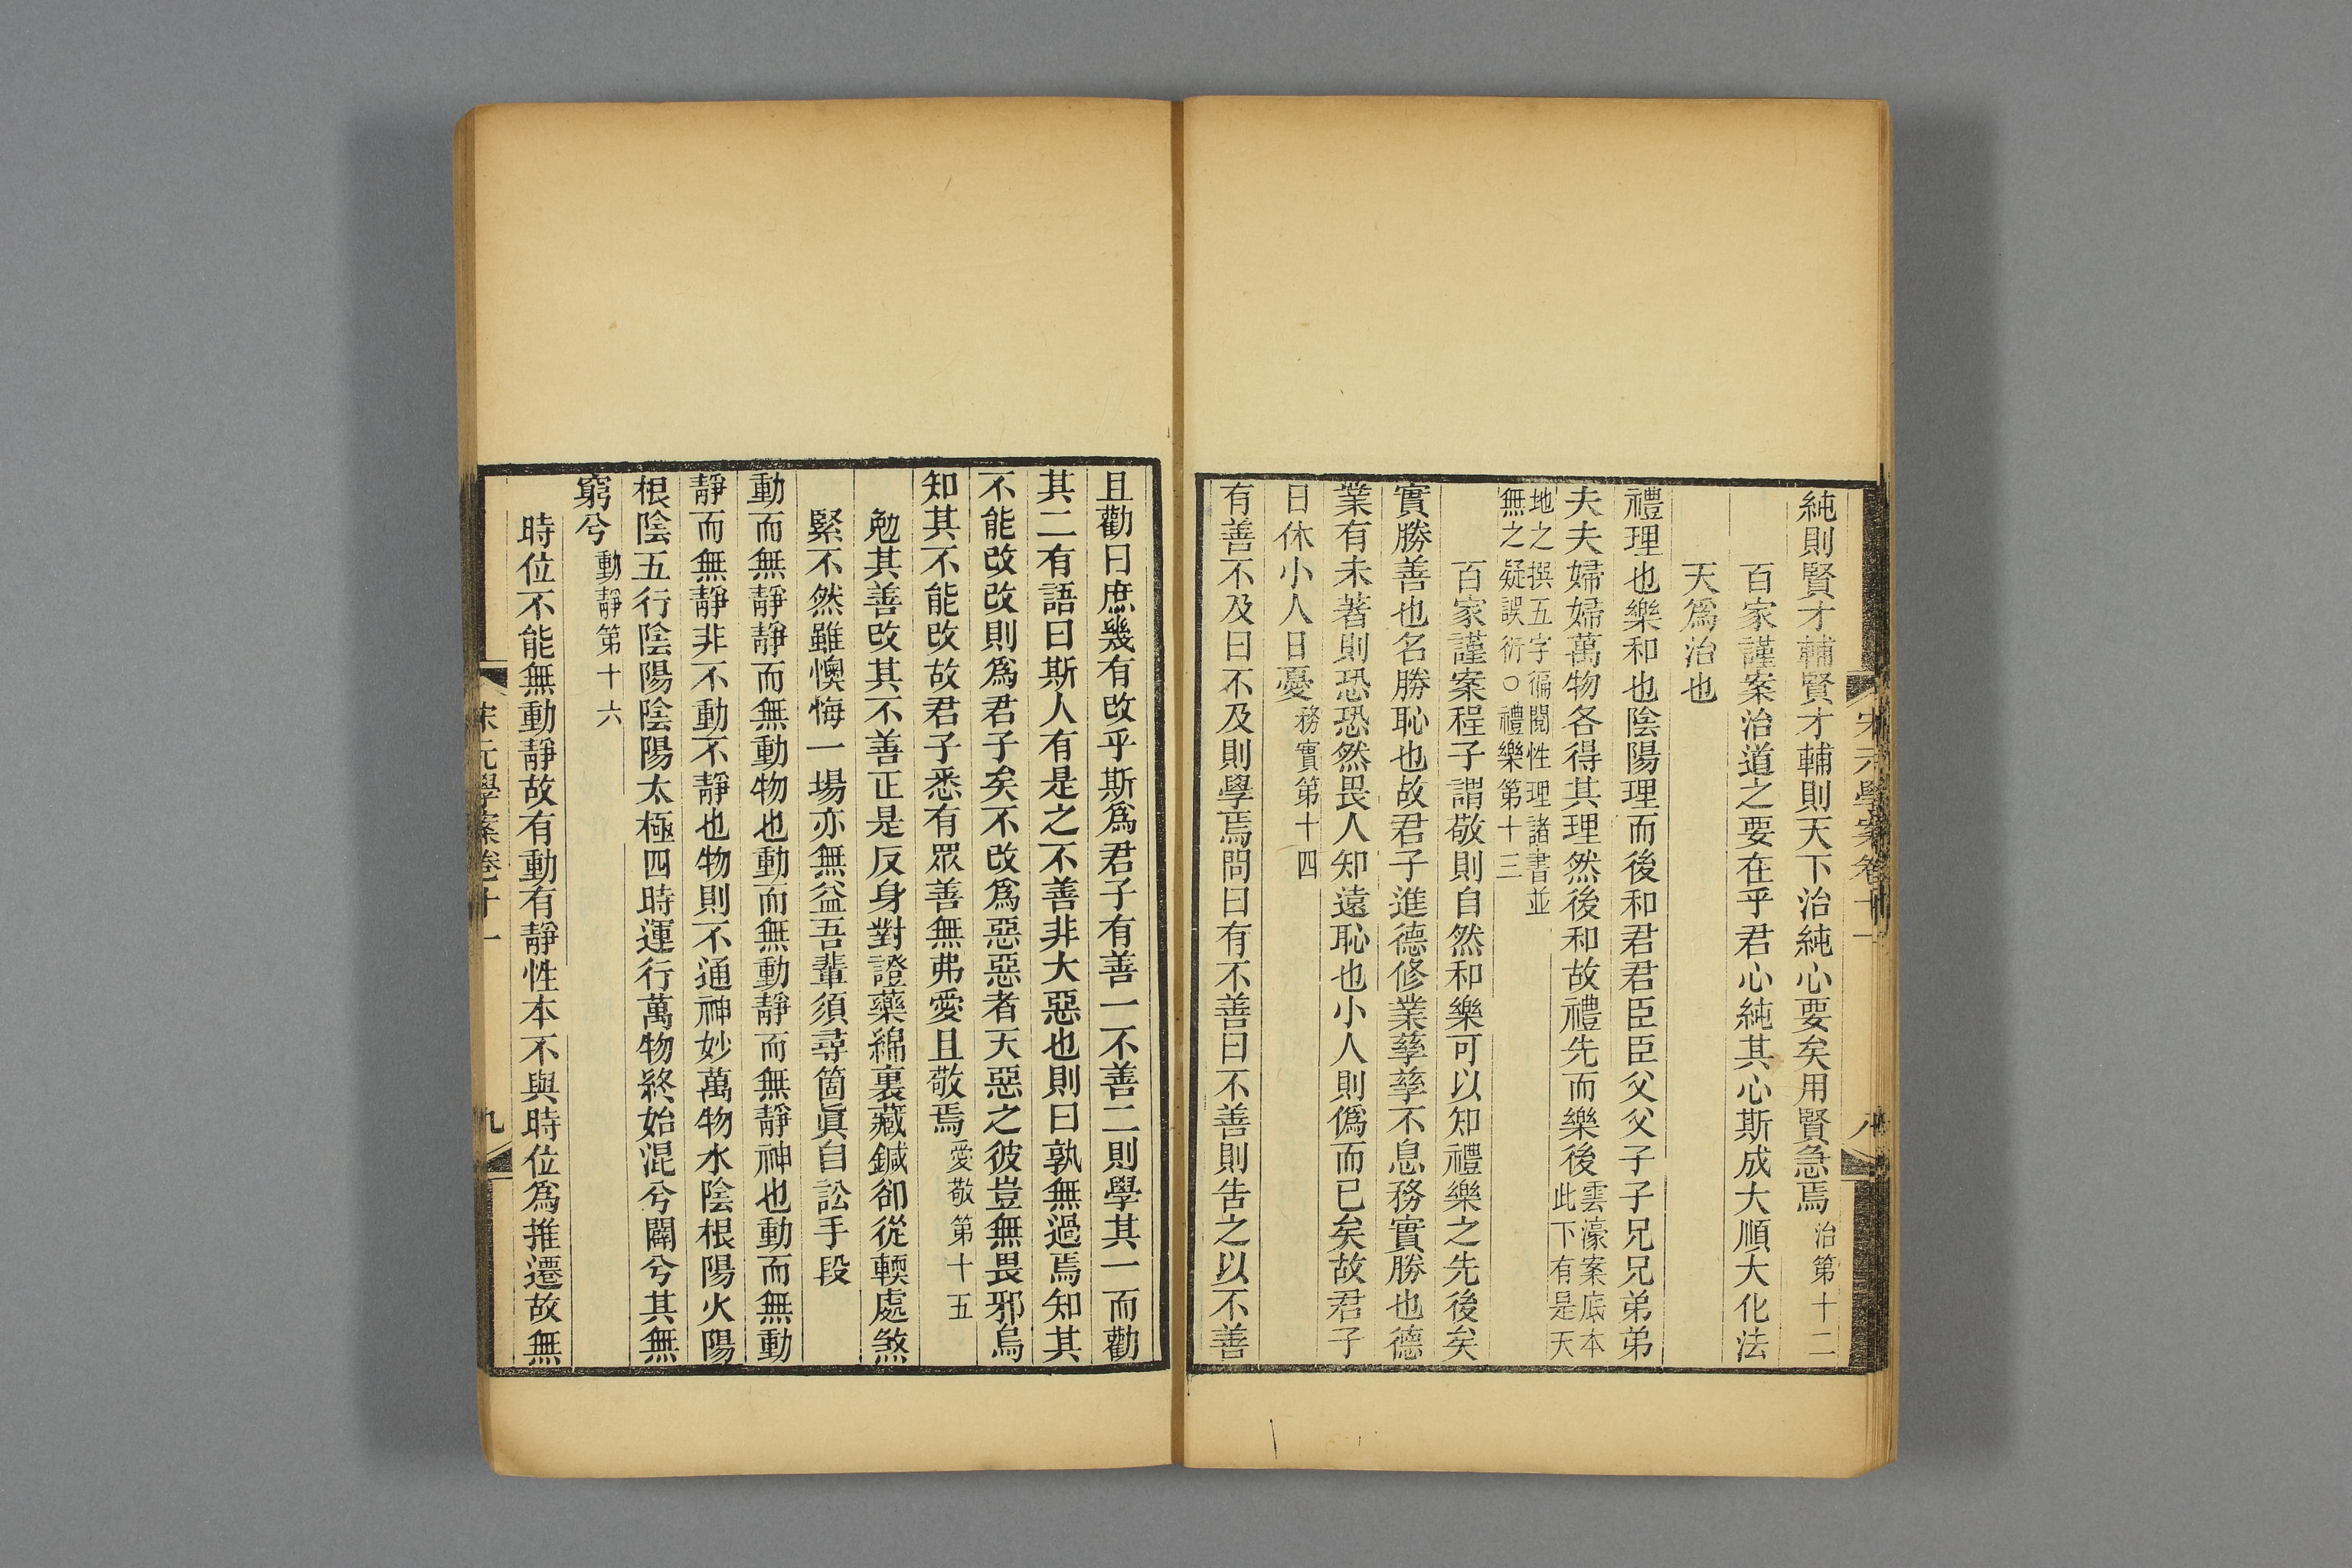 宋元學案卷十一
八
純則賢才輔賢才輔則天下治純心要矣用賢急焉治第十二
百家謹案治道之要在乎君心純其心斯成大順大化法
天爲治也
禮理也樂和也陰陽理而後和君君臣臣父父子子兄兄弟弟
夫夫婦婦萬物各得其理然後和故禮先而樂後雲濠案底本
此下有是天
地之撰五字徧閱性理諸書並
無之疑誤衍○禮樂第十三
百家謹案程子謂敬則自然和樂可以知禮樂之先後矣
實勝善也名勝恥也故君子進德修業孳孳不息務實勝也德
業有未著則恐恐然畏人知遠恥也小人則僞而已矣故君子
日休小人日憂務實第十四
有善不及曰不及則學焉問曰有不善曰不善則告之以不善
且勸曰庶幾有改乎斯爲君子有善一不善二則學其一而勸
其二有語曰斯人有是之不善非大惡也則曰孰無過焉知其
不能改改則爲君子矣不改爲惡惡者天惡之彼豈無畏邪烏
知其不能改故君子悉有眾善無弗愛且敬焉愛敬第十五
勉其善改其不善正是反身對證藥綿裏藏鍼卻從輭處煞
緊不然雖懊悔一場亦無益吾輩須尋箇眞自訟手段
動而無靜靜而無動物也動而無動靜而無靜神也動而無動
靜而無靜非不動不靜也物則不通神妙萬物水陰根陽火陽
根陰五行陰陽陰陽太極四時運行萬物終始混兮闢兮其無
窮兮動靜第十六
時位不能無動靜故有動有靜性本不與時位爲推遷故無
宋元學案卷十一
九